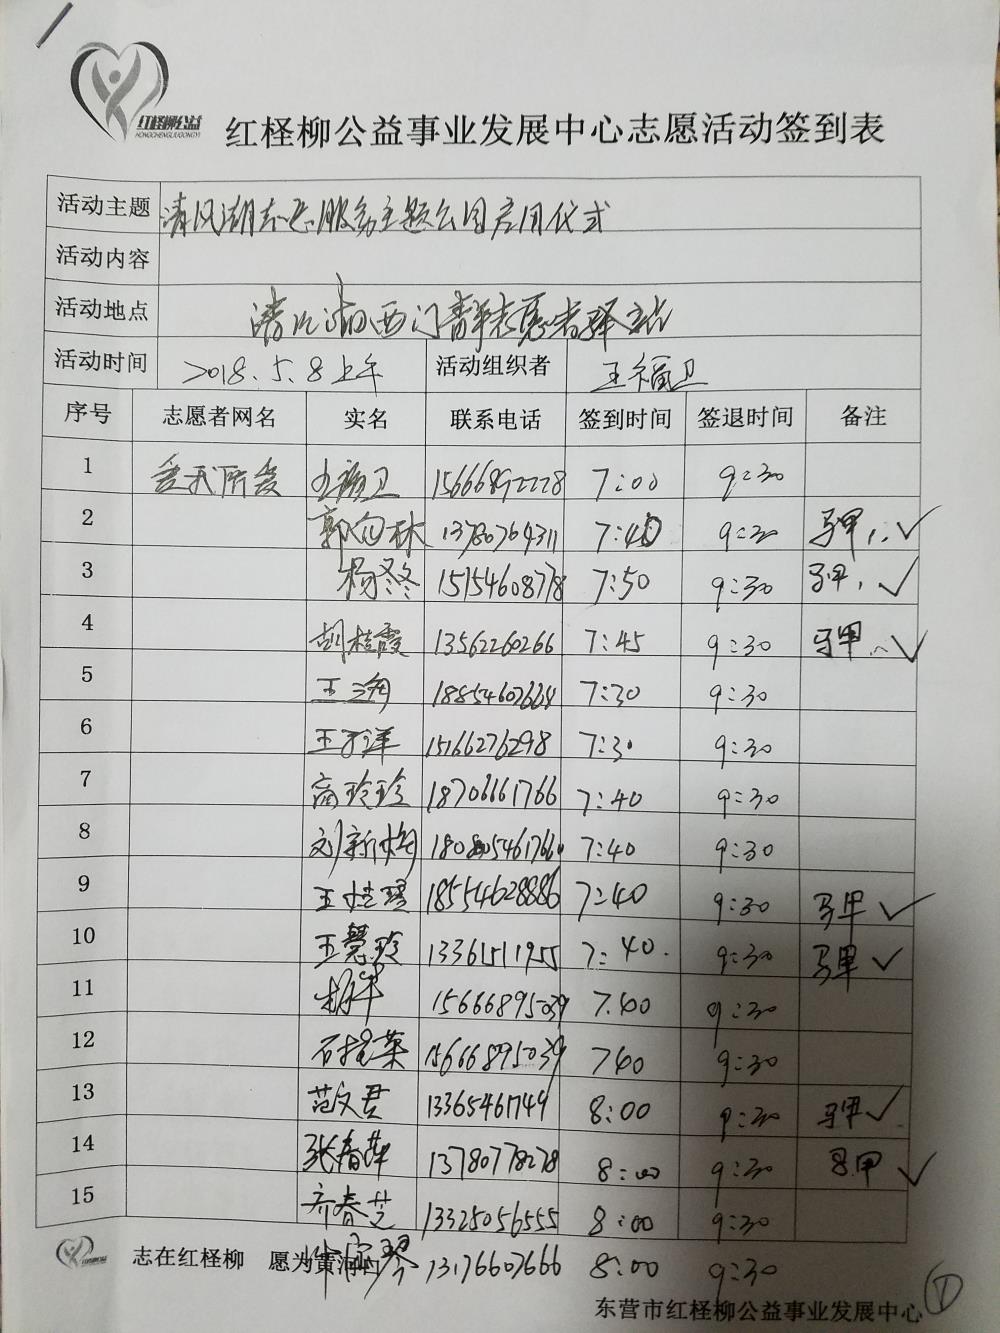 红柽柳公益
HONGCHENGLIUGONGYI
红柽柳公益事业发展中心志愿活动签到表
活动主题 清风湖志愿服务主题公园启用仪式
活动内容
活动地点 清风湖西门青年志愿者驿站
活动时间 2018.5.8上午 活动组织者 王福卫
序号 志愿者网名 实名 联系电话 签到时间 签退时间 备注
1 王福卫 15666892228 7:00 9:30
2 郭向林 13780764311 7:40 9:30 马甲 ✓
3 杨冬冬 15154608778 7:50 9:30 马甲 ✓
4 胡桂霞 13562260266 7:45 9:30 马甲 ✓
5 王 7:30 9:30
6 王子洋 15166276298 7:30 9:30
7 高玲玲 18706661766 7:40 9:30
8 刘新 7:40 9:30
9 王 18554628886 7:40 9:30 马甲 ✓
10 王慧玲 13361511955 7:40 9:30 马甲 ✓
11 15666895039 7:40 9:30
12 石 15666895039 740 9:30
13 范文君 13365461749 8:00 9:30 马甲 ✓
14 张春萍 13780778278 8:00 9:30 马甲 ✓
15 齐春芝 13325056555 8:00 9:30
琴 13176607666 8:00 9:30
志在红柽柳 愿为黄河
东营市红柽柳公益事业发展中心 ①